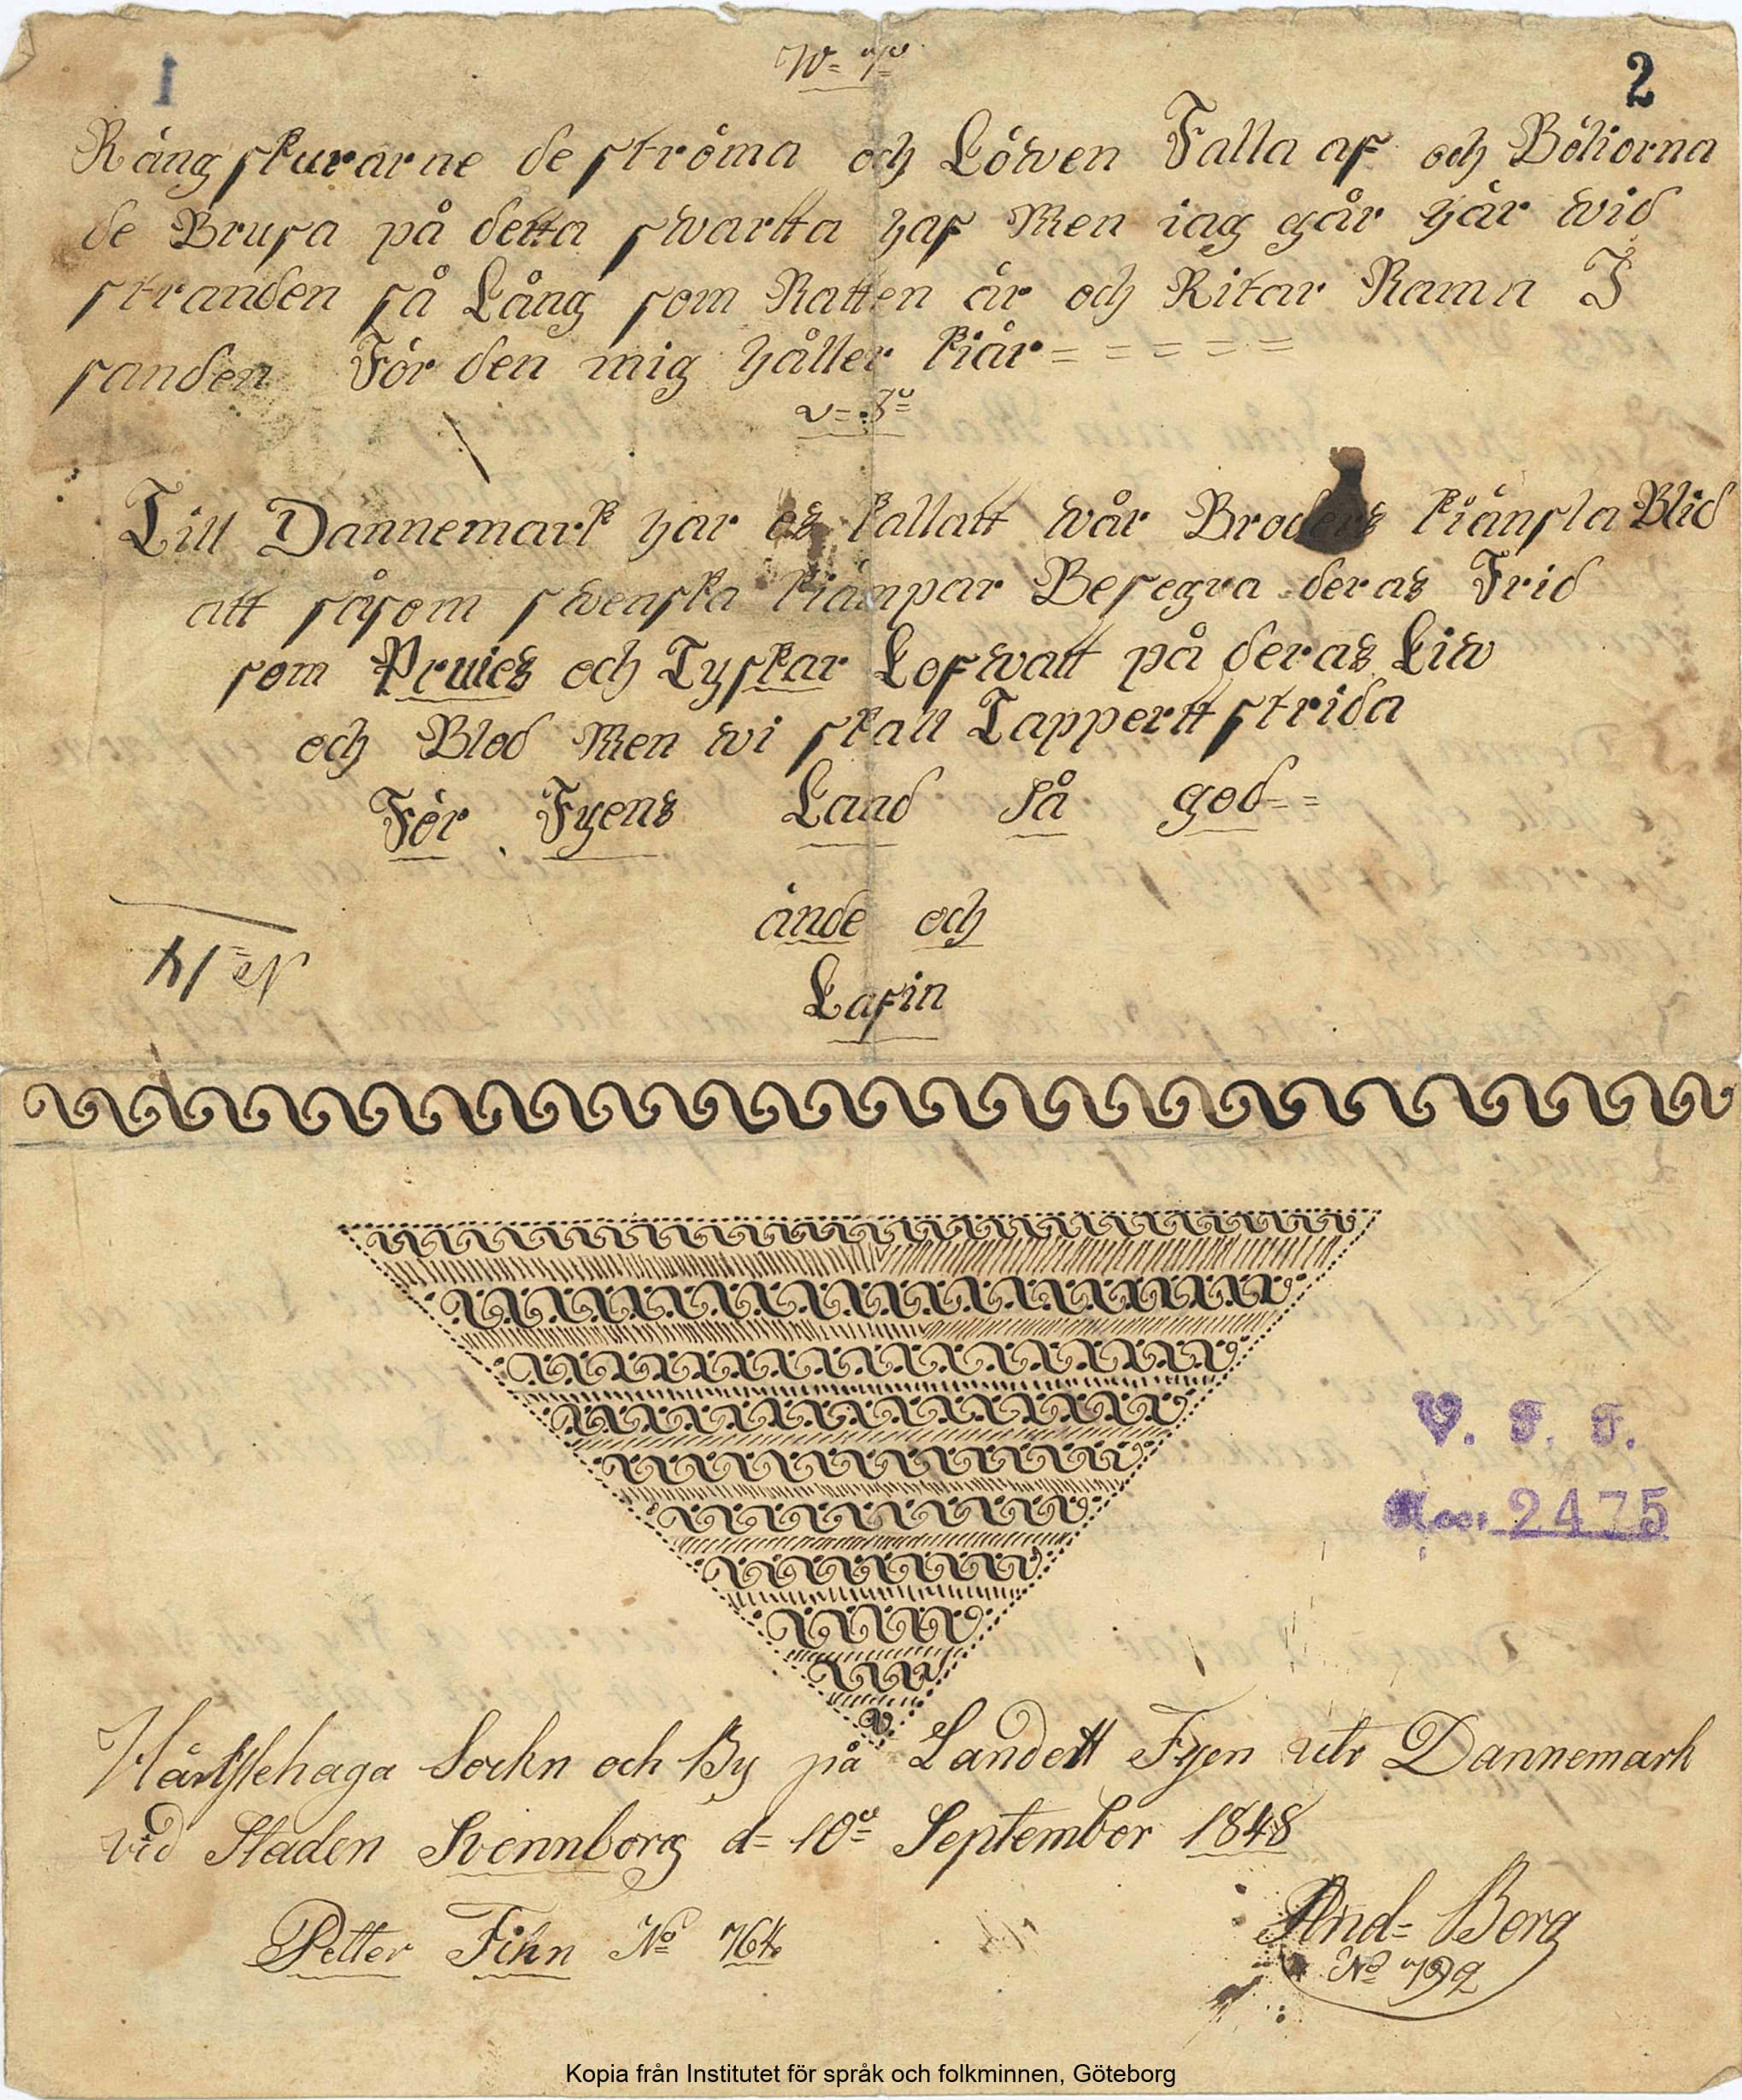 1
2
W= 7=
Rångskurarne de ströma och Löwen Falla af och Böliorna
de Brusa på detta swartta haf Men iag går här wid
stranden så Lång som Natten är och Ritar Namn I
sanden För den mig håller kiär = = = = =
v= 8=
Till Dannemark har os kallatt wår Broders kiänsla Blid
att såsom swenska kiämpar Besegra deras Frid
som Pruies och Tyskar Lofwatt på deras Liw
och Blod Men wi skall Tappertt strida
För Fyens Land Så god= =
ände och
Lasin
No 14
V. F. F.
Acc. 2475
Socken och By på Landett Fyen utr Dannemark
vid Staden Svennborg d= 10= September 1848
Petter Fihn No 764
And= Berg
No 792
Kopia från Institutet för språk och folkminnen, Göteborg